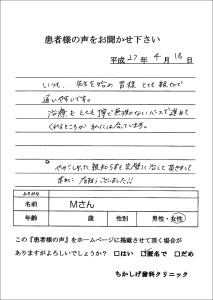 患者様の声をお聞かせ下さい
平成27年4月18日
いつも、先生を始め皆様とても親切で
通いやすいです。
治療もとても丁寧で無理のないペースで進めて
くれるところが私には合っています。
やっかいだった親知らずも完璧に治して頂きまして
本当に有難うございました!!
ふりがな
名前 Mさん
年齢 歳 性別 男性・女性
この『患者様の声』をホームページに掲載させて頂く場合が
ありますがよろしいでしょうか? □はい ☑匿名で □だめ
ちかしげ歯科クリニック